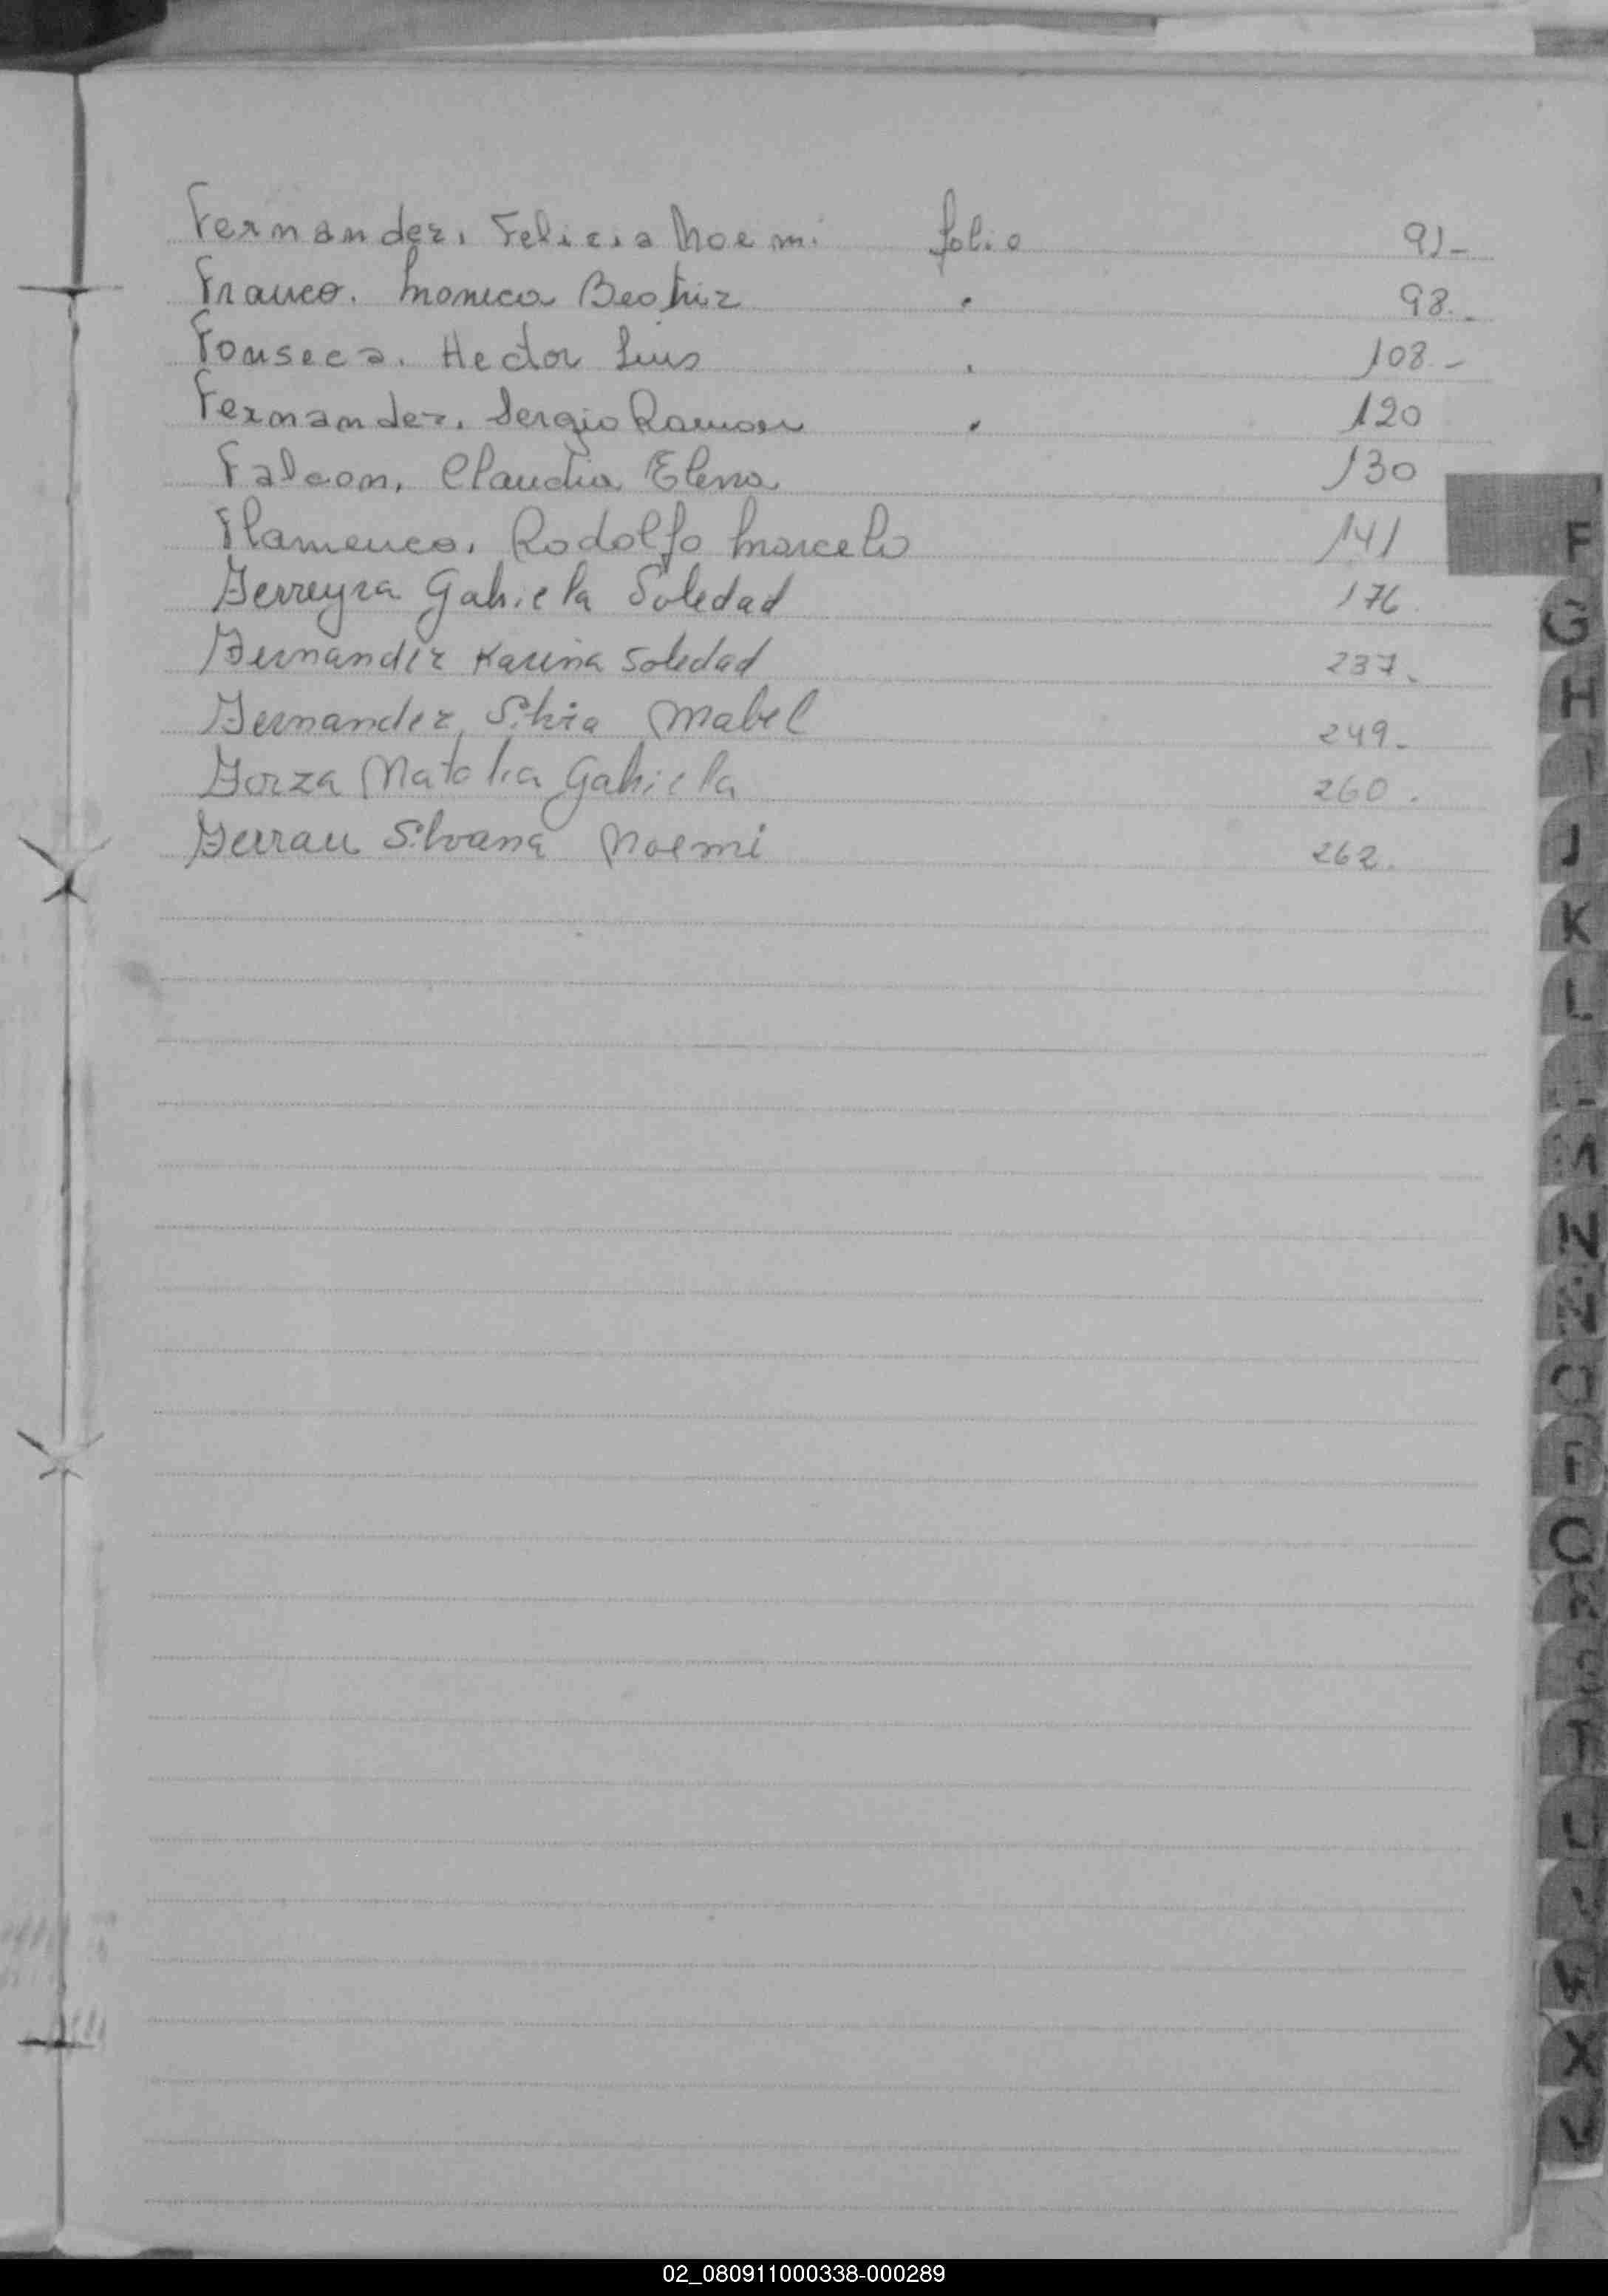 Fernandez, Felicia Noemi folio 91-
Franco. Monica Beatriz " 98.-
Fonseca. Hector Luis " 108.-
Fernandez, Sergio Ramon " 120
Falcon, Claudia Elena 130
Flamenco, Rodolfo Marcelo 141
Ferreyra Gabriela Soledad 176.
Fernandez Karina Soledad 237.
Fernandez, Silvia Mabel 249-
Forza Natalia Gabriela 260.
Ferrau Silvana Noemi 262.
F
G
H
I
J
K
L
N
O
Q
T
U
X
02_080911000338-000289